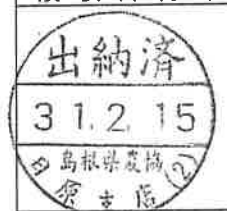 出納済
31.2.15
島根県農協
支店(2)